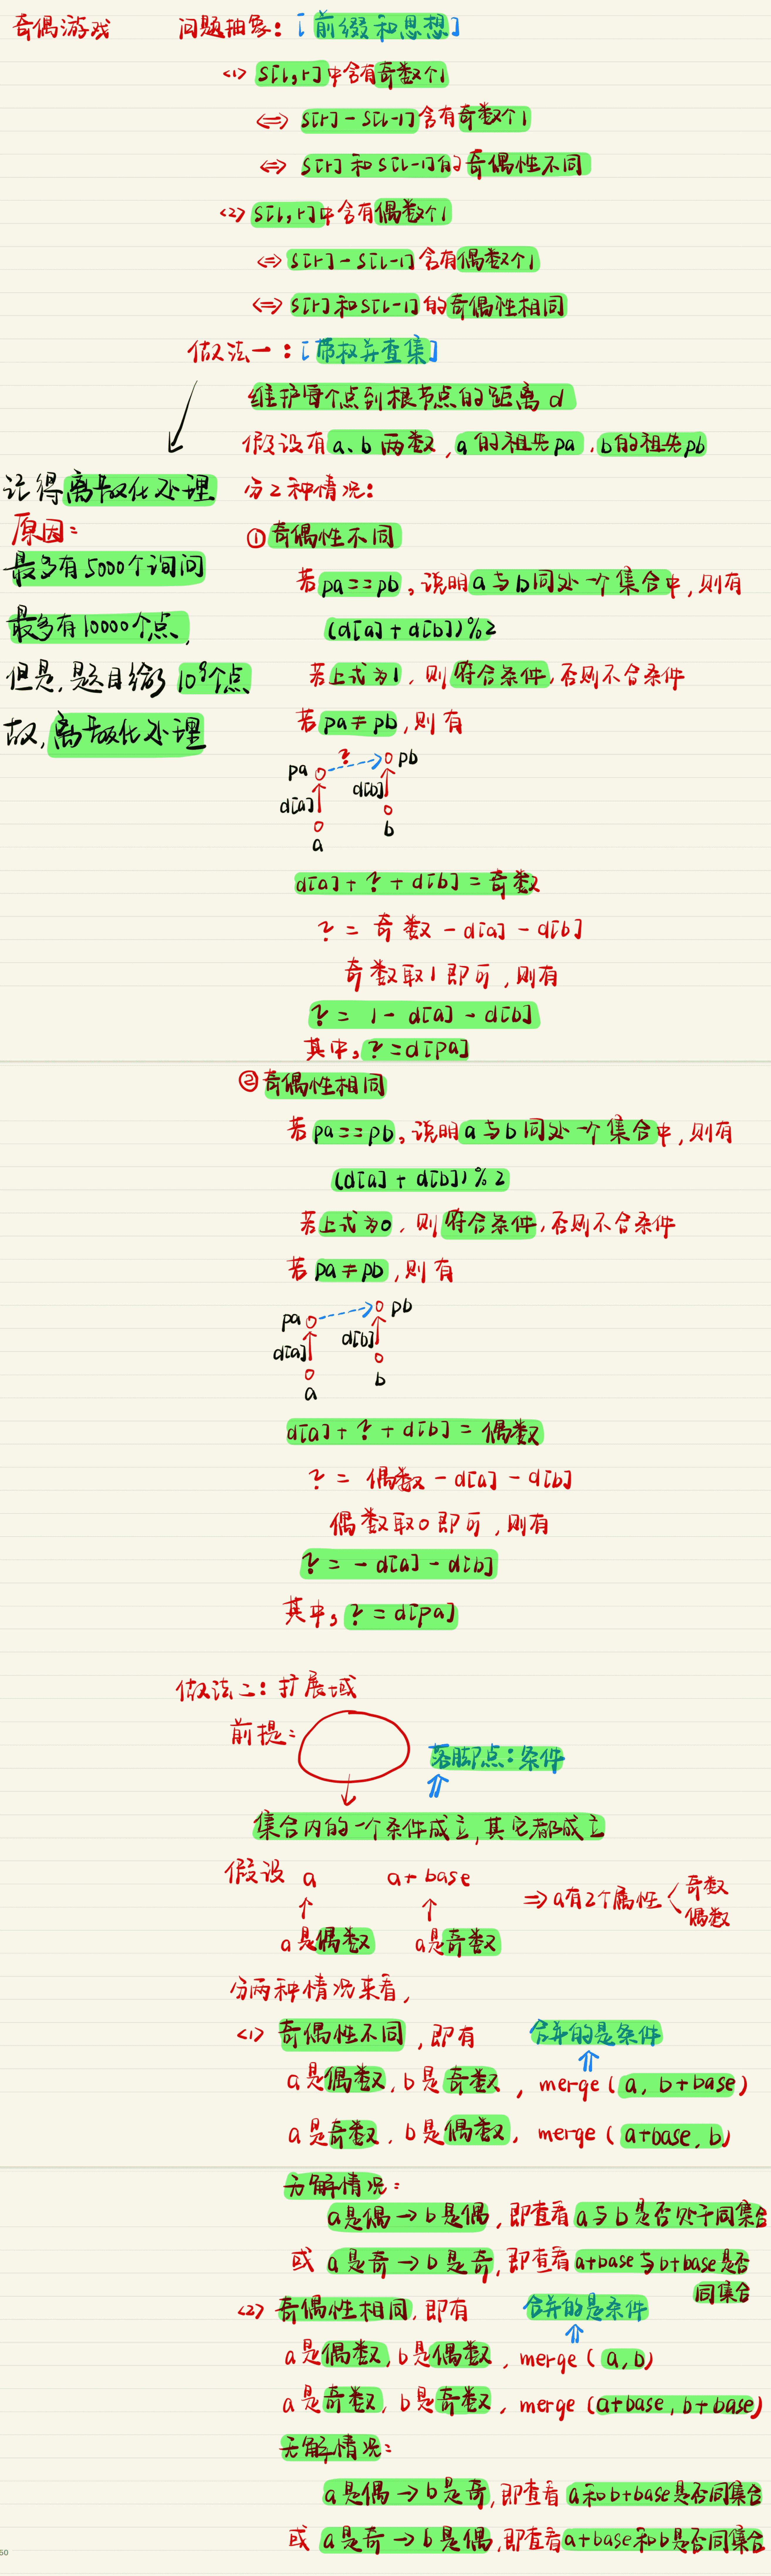 奇偶游戏 问题抽象: [前缀和思想]
<1> S[l,r]中含有奇数个1
<=> S[r] - S[l-1]含有奇数个1
<=> S[r] 和 S[l-1]的 奇偶性不同
<2> S[l,r]中含有偶数个1
<=> S[r] - S[l-1] 含有偶数个1
<=> S[r]和S[l-1] 的奇偶性相同
做法一: [带权并查集]
维护每个点到根节点的距离 d
假设有 a、b 两数, a 的祖先pa, b的祖先pb
记得离散化处理
原因:
最多有5000个询问
最多有10000个点,
但是,题目给了 10⁹个点
故,离散化处理
分2种情况:
① 奇偶性不同
若pa==pb, 说明a与b同处一个集合中,则有
(d[a] + d[b])%2
若上式为1, 则符合条件,否则不合条件
若 pa≠pb,则有
? pb
pa
d[b]
d[a]
b
a
d[a] + ? + d[b] = 奇数
? = 奇数 - d[a] - d[b]
奇数取1即可,则有
? = 1 - d[a] - d[b]
其中, ? = d[pa]
② 奇偶性相同
若 pa==pb, 说明a与b同处一个集合中,则有
(d[a] + d[b])%2
若上式为0, 则符合条件,否则不合条件
若 pa≠pb,则有
pb
pa
d[b]
d[a]
b
a
d[a] + ? + d[b] = 偶数
? = 偶数 - d[a] - d[b]
偶数取0即可,则有
? = - d[a] - d[b]
其中, ? = d[pa]
做法二: 扩展域
前提:
落脚点:条件
集合内的一个条件成立,其它都成立
假设 a a+base
=> a有2个属性 < 奇数 偶数
a是偶数 a是奇数
分两种情况来看,
<1> 奇偶性不同,即有 合并的是条件
a是偶数, b是奇数, merge(a, b+base)
a是奇数, b是偶数, merge(a+base, b)
无解情况:
a是偶→b是偶,即查看a与b是否处于同集合
或 a是奇→b是奇,即查看a+base与b+base是否
同集合
<2> 奇偶性相同,即有 合并的是条件
a是偶数, b是偶数, merge(a,b)
a是奇数, b是奇数, merge(a+base, b+base)
无解情况:
a是偶→b是奇,即查看 a和b+base是否同集合
或 a是奇→b是偶,即查看a+base和b是否同集合